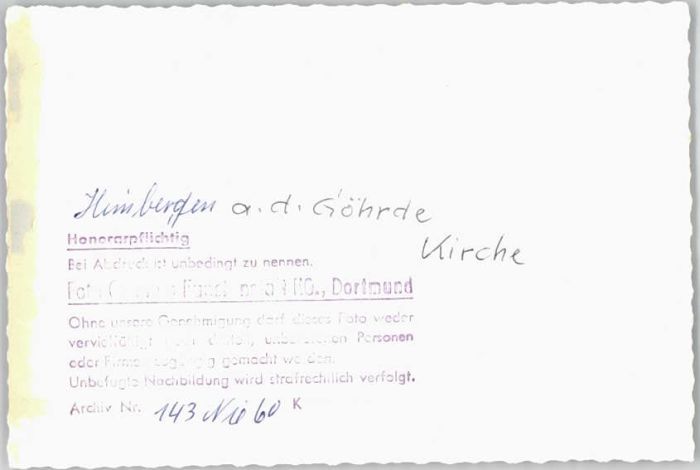 Himbergen a.d. Göhrde
Kirche
Honorarpflichtig
Bei Abdruck ist unbedingt zu nennen.
Foto & CO., Dortmund
Ohne unsere Genehmigung darf dieses Foto weder
vervielfältigt dritten, unberufenen Personen
oder Firmen zugängig gemacht werden.
Unbefugte Nachbildung wird strafrechtlich verfolgt.
Archiv Nr. 143 Nie 60 K